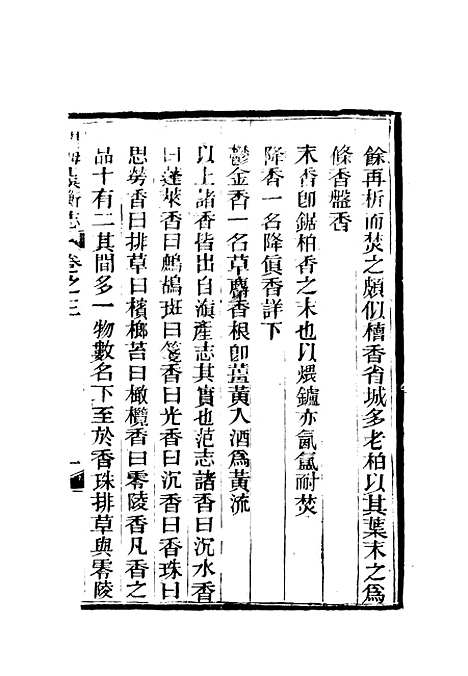 餘再析而焚之頗似檀香省城多老柏以其葉末之爲
條香盤香
末香卽鋸柏香之末也以煨鑪亦氤氳耐焚
降香一名降眞香詳下
鬱金香一名草麝香根卽薑黃入酒爲黃流
以上諸香皆出自滇產志其實也范志諸香曰沉水香
曰蓬萊香曰鷓鴣斑曰箋香曰光香曰沉香曰香珠曰
思勞香曰排草曰檳榔苔曰橄欖香曰零陵香凡香之
品十有二其間多一物數名下至於香珠排草與零陵
滇海虞衡志 卷之三